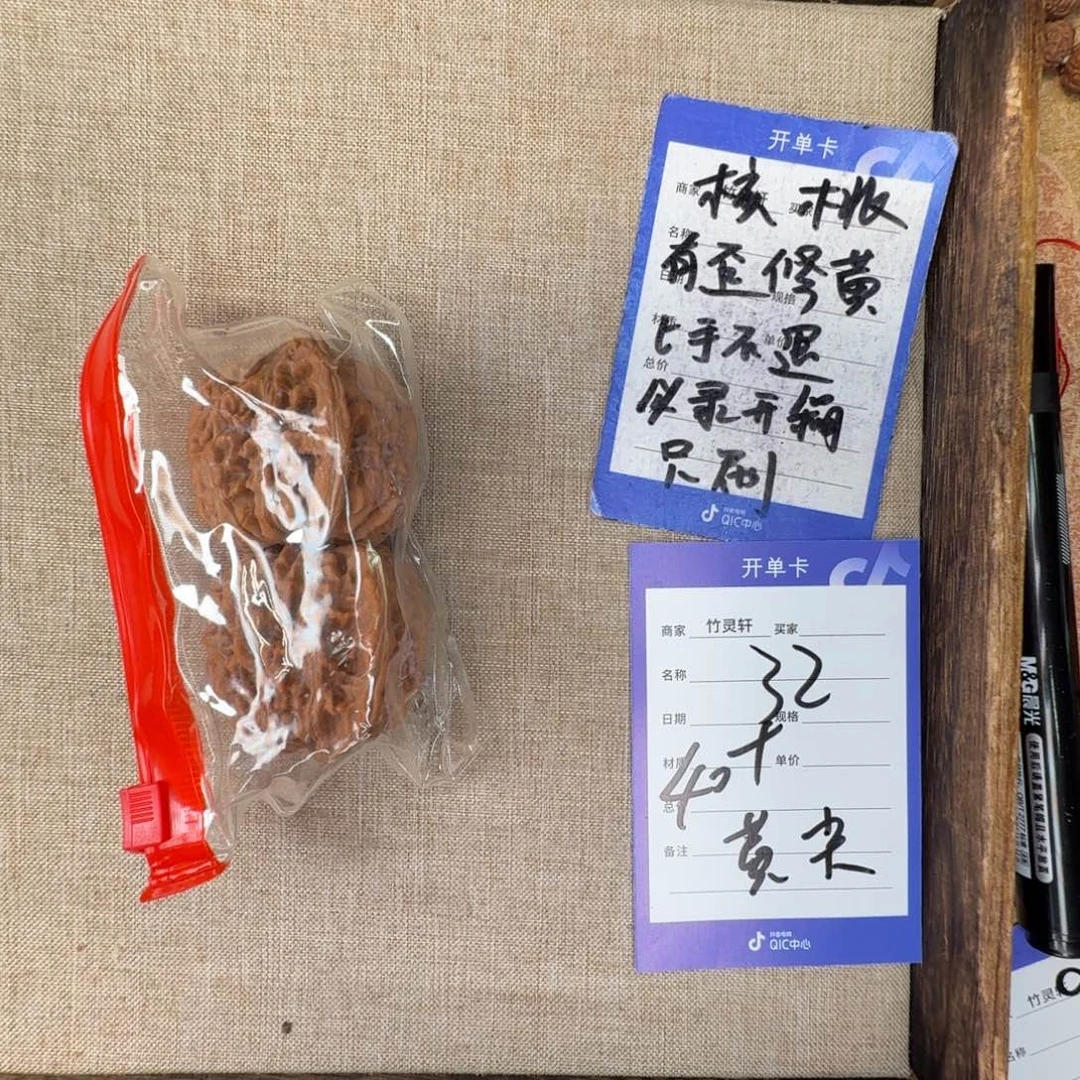 开单卡
商家 买家
核桃
名称
有歪修黄
日期 规格
上手不退
单价
总价
以录开箱
只刷
抖音电商
QIC中心
开单卡
商家 竹灵轩 买家
名称
32
日期 规格
40+
材质 单价
备注
黄尖
抖音电商
QIC中心
M&G晨光
竹灵轩
名称